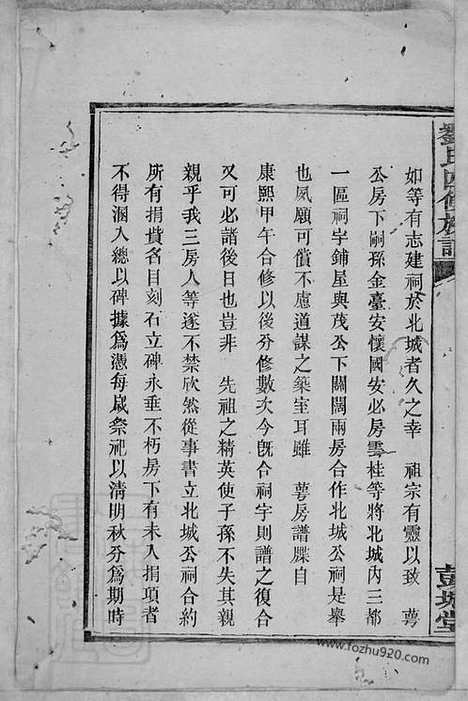 劉氏四修族譜
彭城堂
如等有志建祠於北城者久之幸　祖宗有靈以致　蕚
公房下嗣孫金臺安懷國安必房雲桂等將北城內三都
一區祠宇鋪屋與茂公下關閣兩房合作北城公祠是舉
也夙願可償不慮道謀之築室耳雖　蕚房譜牒自
康熙甲午合修以後分修數次今旣合祠宇則譜之復合
又可必諸後日也豈非　先祖之精英使子孫不失其親
親乎我三房人等遂不禁欣然從事書立北城公祠合約
所有捐貲名目刻石立碑永垂不朽房下有未入捐項者
不得溷入總以碑據爲憑每歲祭祀以清明秋分爲期時
www.fozhu920.com